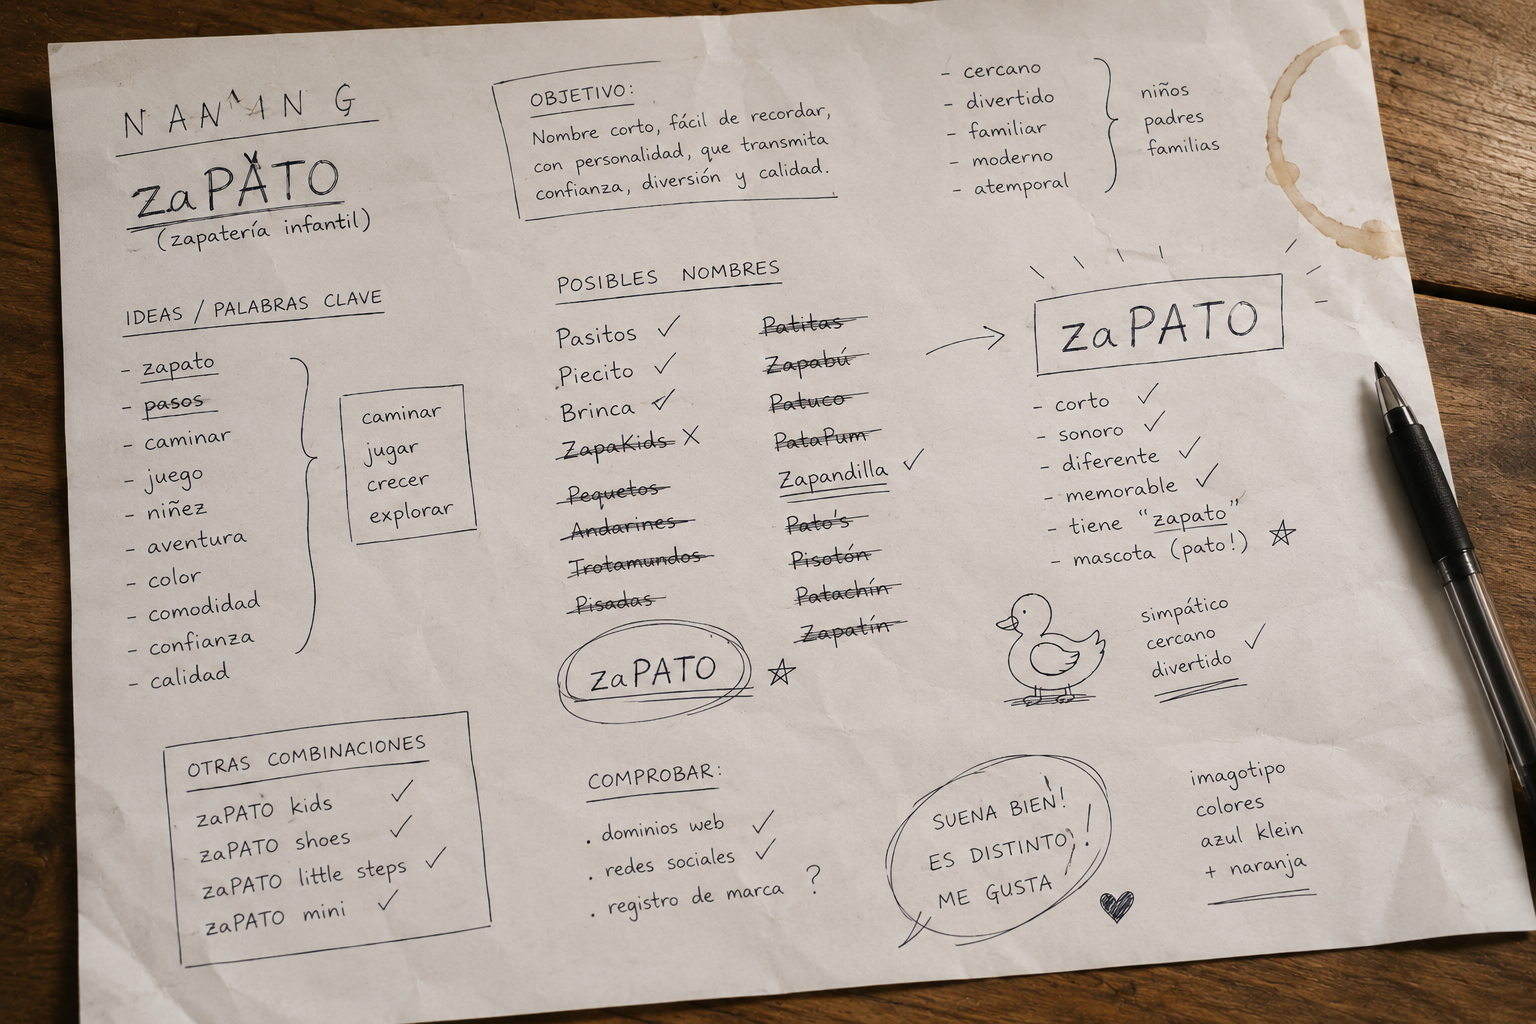 NAMING
zaPATO
(zapatería infantil)
OBJETIVO:
Nombre corto, fácil de recordar,
con personalidad, que transmita
confianza, diversión y calidad.
- cercano
- divertido
- familiar
- moderno
- atemporal
niños
padres
familias
IDEAS / PALABRAS CLAVE
- zapato
- pasos
- caminar
- juego
- niñez
- aventura
- color
- comodidad
- confianza
- calidad
caminar
jugar
crecer
explorar
POSIBLES NOMBRES
Pasitos ✓
Piecito ✓
Brinca ✓
ZapaKids X
Pequetos
Andarines
Trotamundos
Pisadas
zaPATO ☆
Patitas
Zapabú
Patuco
PataPum
Zapandilla ✓
Pato's
Pisotón
Patachín
Zapatín
→ zaPATO
- corto ✓
- sonoro ✓
- diferente ✓
- memorable ✓
- tiene "zapato"
- mascota (pato!) ☆
simpático
cercano
divertido ✓
OTRAS COMBINACIONES
zaPATO kids ✓
zaPATO shoes ✓
zaPATO little steps ✓
zaPATO mini ✓
COMPROBAR:
. dominios web ✓
. redes sociales ✓
. registro de marca ?
SUENA BIEN!
ES DISTINTO!
ME GUSTA
♥
imagotipo
colores
azul klein
+ naranja